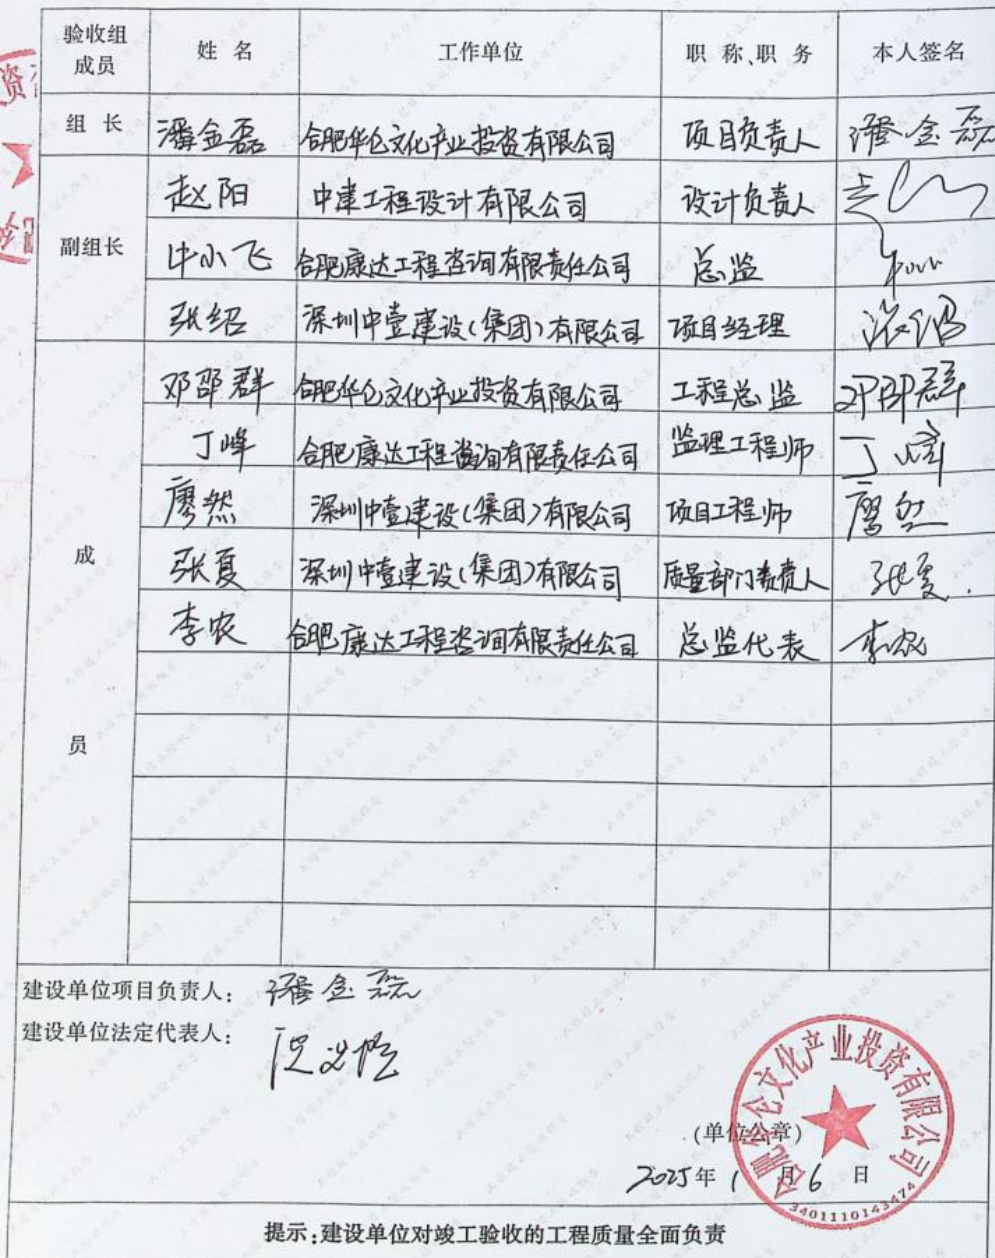 验收组成员 姓 名 工作单位 职 称、职 务 本人签名
组 长 潘金磊 合肥华仑文化产业投资有限公司 项目负责人 潘金磊
副组长 赵阳 中建工程设计有限公司 设计负责人
牛小飞 合肥康达工程咨询有限责任公司 总监
张绍 深圳中壹建设(集团)有限公司 项目经理
成员 邓邵群 合肥华仑文化产业投资有限公司 工程总监 邓邵群
丁峰 合肥康达工程咨询有限责任公司 监理工程师 丁峰
廖然 深圳中壹建设(集团)有限公司 项目工程师 廖然
张夏 深圳中壹建设(集团)有限公司 质量部门负责人 张夏
李农 合肥康达工程咨询有限责任公司 总监代表 李农
建设单位项目负责人: 潘金磊
建设单位法定代表人:
合肥华仑文化产业投资有限公司
(单位公章)
2025年 1 月 6 日
3401110143474
提示:建设单位对竣工验收的工程质量全面负责